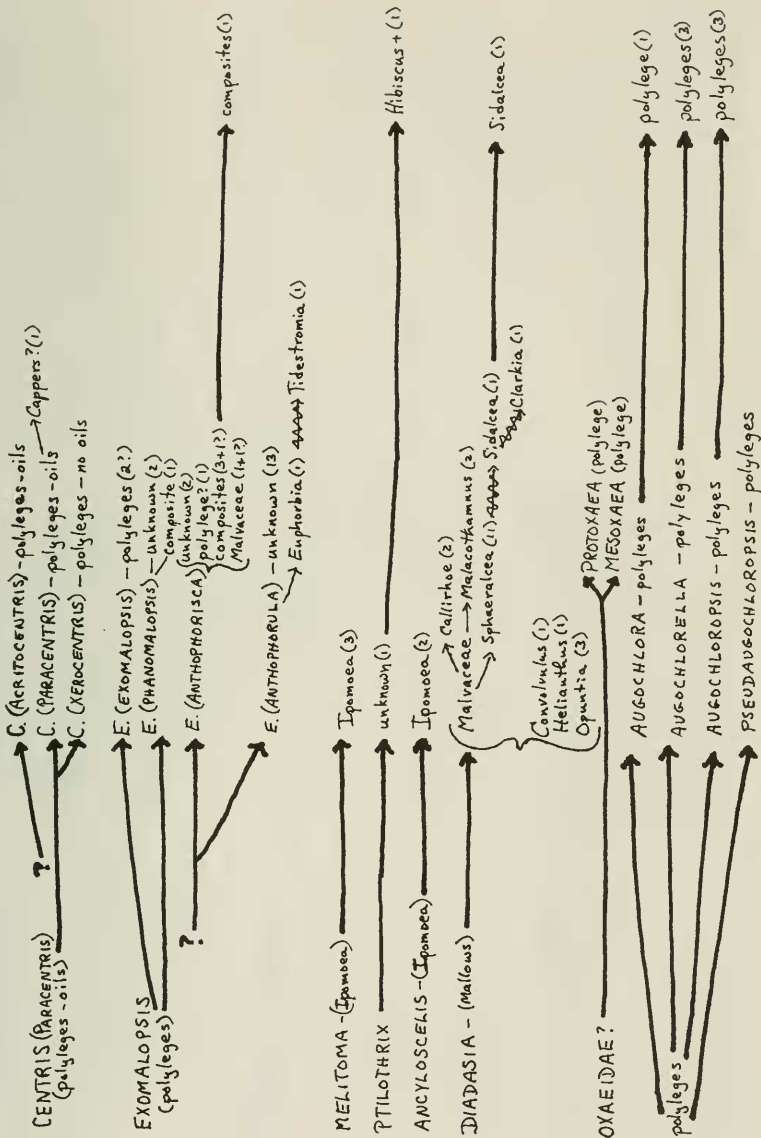 CENTRIS (PARACENTRIS)
(polyleges - oils)
?
C. (ACRITOCENTRIS) - polyleges - oils
C. (PARACENTRIS) - polyleges - oils
Cappers? (1)
C. (XEROCENTRIS) - polyleges - no oils
EXOMALOPSIS
(polyleges)
?
E. (EXOMALOPSIS) - polyleges (2?)
E. (PHANOMALOPSIS) - unknown (2)
Composite (1)
E. (ANTHOPHORISCA)
unknown (2)
polylege? (1)
Composites (3+1?)
Malvaceae (1+1?)
composites (1)
E. (ANTHOPHORULA) - unknown (13)
Euphorbia (1)
Tidestromia (1)
MELITOMA - (Ipomoea)
Ipomoea (3)
PTILOTHRIX
unknown (1)
Hibiscus + (1)
ANCYLOSCELIS - (Ipomoea)
Ipomoea (2)
DIADASIA - (Mallows)
Callirhoe (2)
Malvaceae
Malacothamnus (2)
Sphaeralcea (11)
Sidalcea (1)
Sidalcea (1)
Clarkia (1)
Convolvulus (1)
Helianthus (1)
Opuntia (3)
OXAEIDAE?
PROTOXAEA (polylege)
MESOXAEA (polylege)
polyleges
AUGOCHLORA - polyleges
polylege (1)
AUGOCHLORELLA - polyleges
polyleges (3)
AUGOCHLOROPSIS - polyleges
polyleges (3)
PSEUDAUGOCHLOROPSIS - polyleges